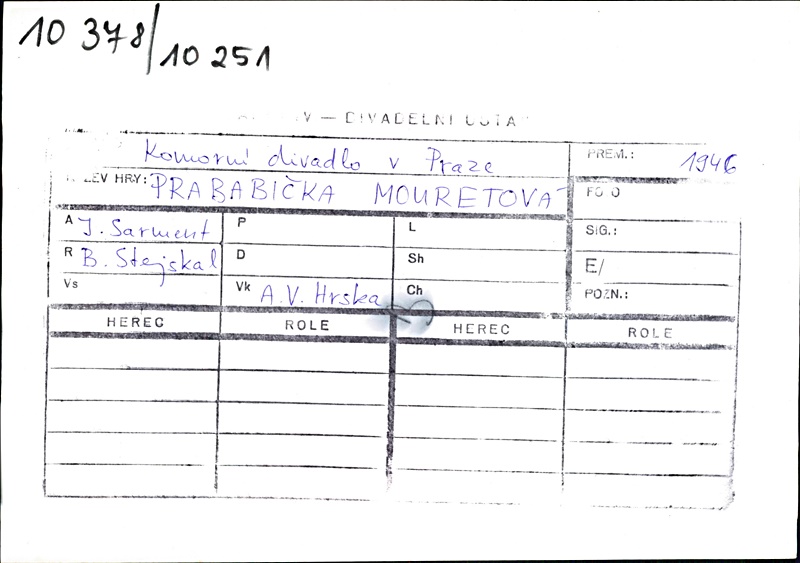 10 378/10 251
V — DIVADELNÍ ÚSTA
Komorní divadlo v Praze PREM.: 1946
ZEV HRY: PRABABIČKA MOURETOVÁ FOTO
A J. Sarment P L SIG.:
R B. Stejskal D Sh E/
Vs Vk A.V. Hrska Ch POZN.:
HEREC ROLE HEREC ROLE